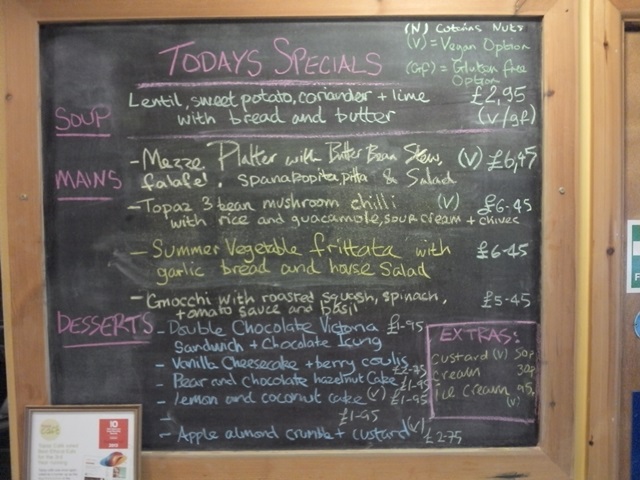 (N) Cotains Nuts
(V) = Vegan Option
(Gf) = Gluten free
Option
TODAYS SPECIALS
SOUP
Lentil, sweet potato, coriander + lime £2,95
with bread and butter (v/gf)
MAINS
- Mezze Platter with Butter Bean Stew, (V) £6,45
falafel, spanakopita, pitta & Salad
- Topaz 3 bean mushroom chilli (V) £6-45
with rice and guacamole, sour cream + chives
- Summer Vegetable frittata with £6-45
garlic bread and house Salad
- Gnocchi with roasted squash, spinach, £5-45
tomato sauce and basil
DESSERTS
- Double Chocolate Victoria £1-95
Sandwich + Chocolate Icing
- Vanilla Cheesecake + berry coulis £2-75
- Pear and Chocolate hazelnut Cake £1-95
- Lemon and coconut cake (V) £1-95
- £1-95
- Apple almond crumble + custard (V) £2-75
EXTRAS:
custard (V) 50p
cream 30p
ice cream 95p
(V)
10